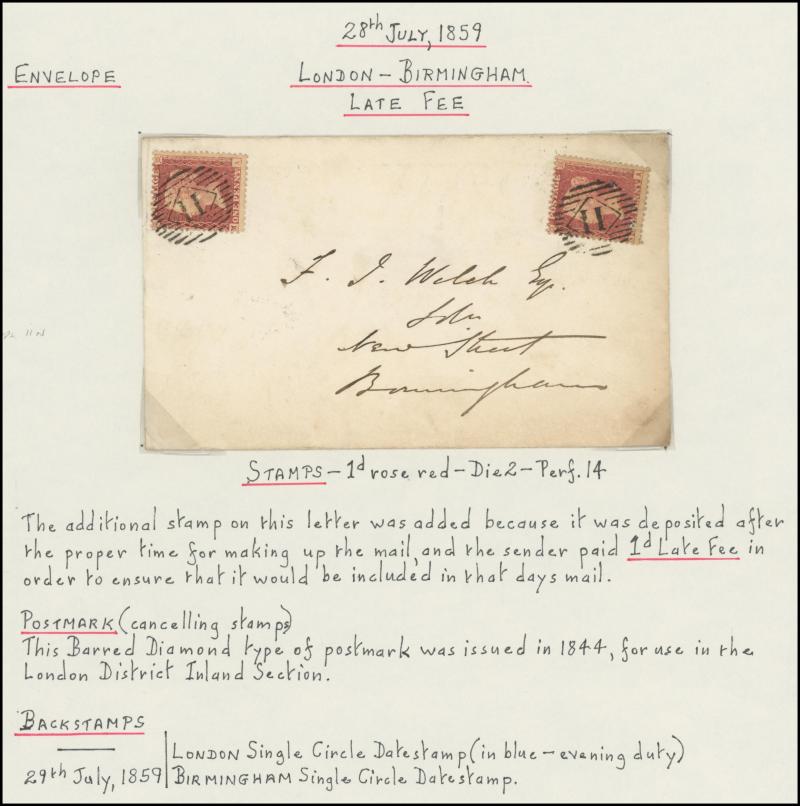 28th July, 1859
ENVELOPE
LONDON – BIRMINGHAM.
LATE FEE
ONE PENNY
11
11
F. J. Welch Esq.
New Street
Birmingham
STAMPS – 1d rose red – Die 2 – Perf. 14
The additional stamp on this letter was added because it was deposited after
the proper time for making up the mail, and the sender paid 1d Late Fee in
order to ensure that it would be included in that days mail.
POSTMARK (cancelling stamps)
This Barred Diamond type of postmark was issued in 1844, for use in the
London District Inland Section.
BACKSTAMPS
LONDON Single Circle Datestamp (in blue – evening duty)
29th July, 1859 BIRMINGHAM Single Circle Datestamp.